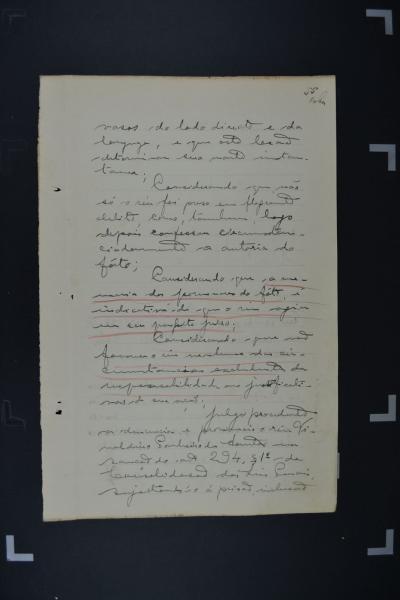 55
vasos do lado direito e da
laryngе, e que esta lesão
determinou sua morte instan-
tanea;
Considerando que não
só o réu foi preso em flagrante
delicto como, tambem, logo
depois confessou circumstan-
ciadamente a autoria do
fáto;
Considerando que a me-
moria dos pormenores do fáto, é
indicativa de que o réu agiu
em seu perfeito juizo;
Considerando que não
favorece o réu nenhuma das cir-
cumstancias excludentes da
responsabilidade ou justificati-
vas de sua ação;
julgo procedente
a denuncia e pronuncio o réu
Pinheiro dos Santos em
sancção do art. 294, § 1º da
Consolidação das Leis Penaes,
sujeitando-o á prisão,